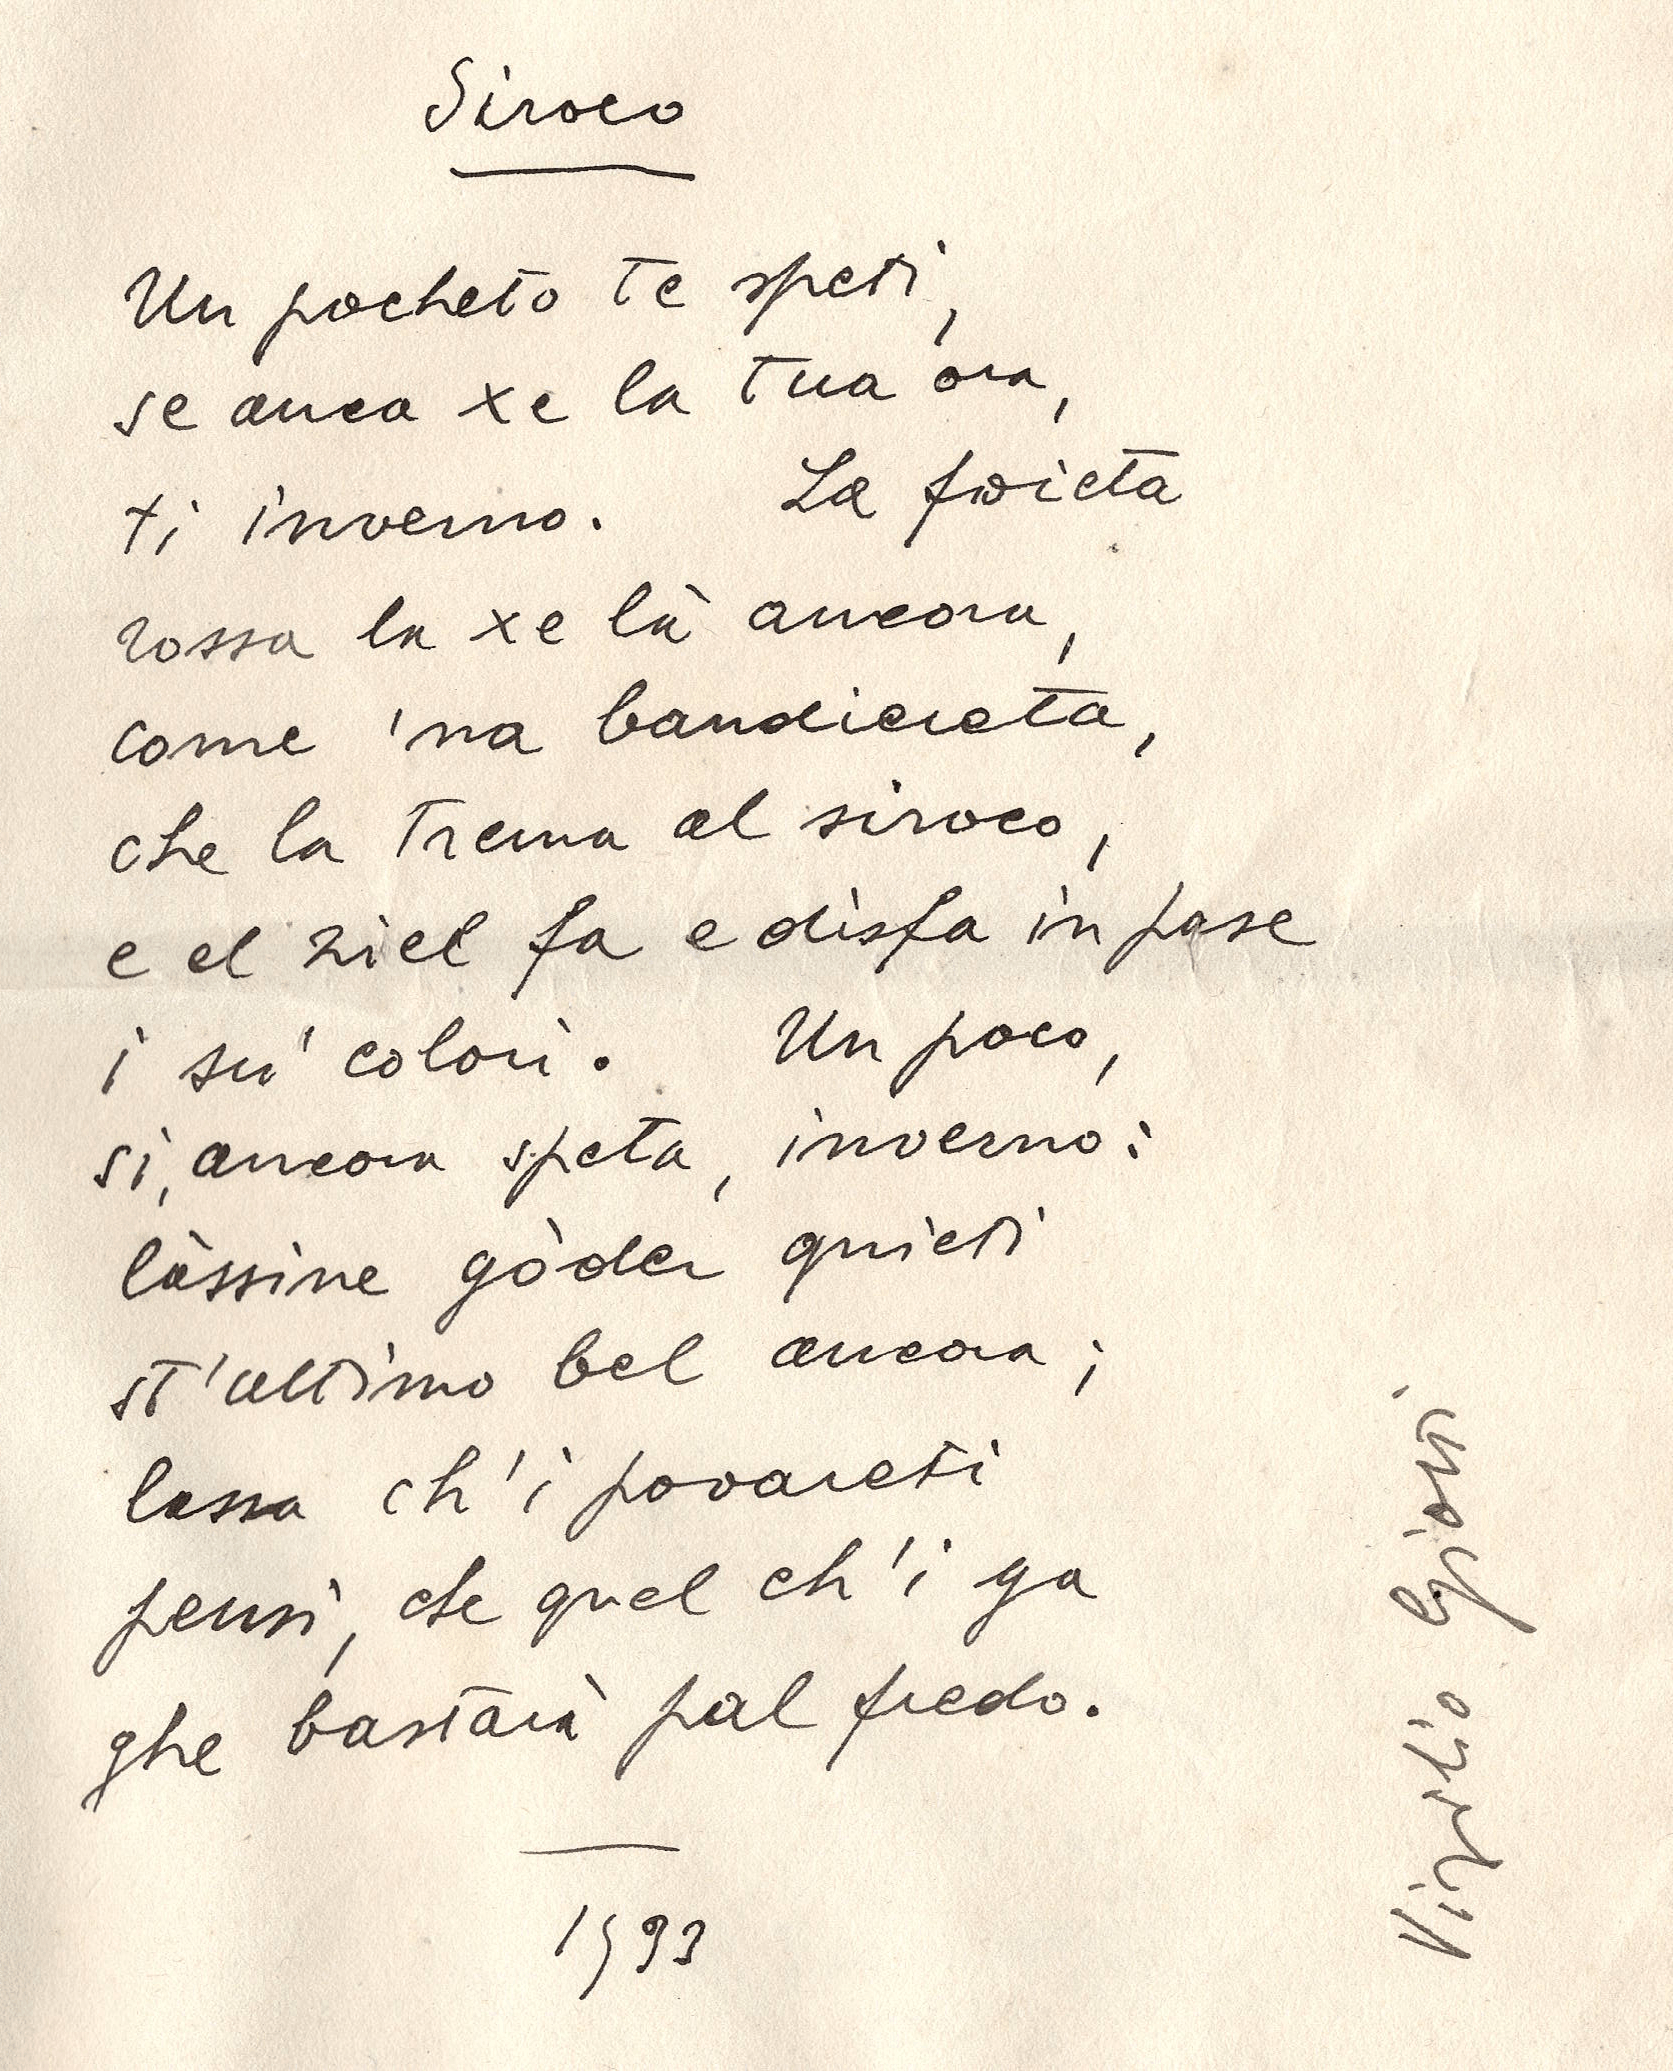 Siroco
Un pocheto te speti,
se anca xe la tua ora,
ti inverno. La foieta
rossa la xe là ancora,
come 'na bandiereta,
che la trema al siroco,
e el ziel fa e disfa in pase
i su' colori. Un poco,
si, ancora speta, inverno:
làssine gòder quieti
st'ultimo bel ancora;
lassa ch'i povareti
pensi, che quel ch'i ga
ghe bastarà pal fredo.
1993
Virgilio Giotti